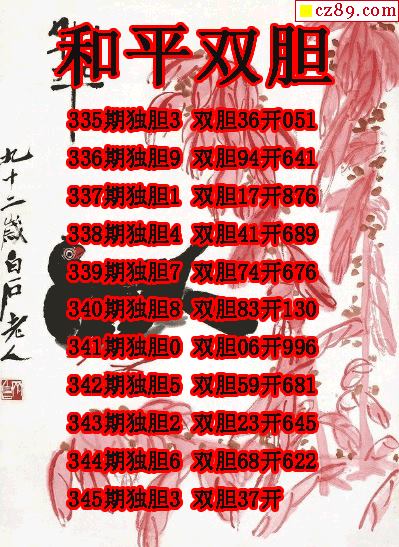 cz89.com
和平双胆
335期独胆3 双胆36开051
336期独胆9 双胆94开641
337期独胆1 双胆17开876
338期独胆4 双胆41开689
339期独胆7 双胆74开676
340期独胆8 双胆83开130
341期独胆0 双胆06开996
342期独胆5 双胆59开681
343期独胆2 双胆23开645
344期独胆6 双胆68开622
345期独胆3 双胆37开
九十二岁白石老人